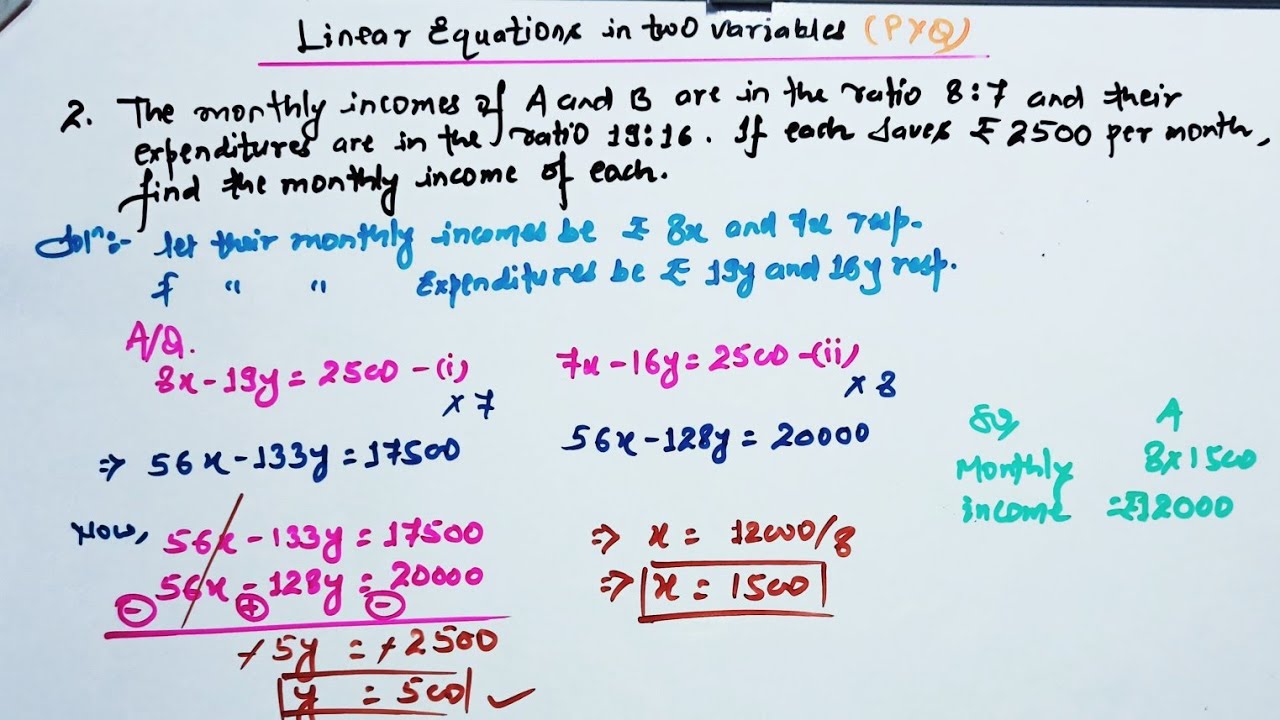 Linear Equations in two variables (PYQ)
2. The monthly incomes of A and B are in the ratio 8:7 and their
expenditures are in the ratio 19:16. If each saves ₹ 2500 per month,
find the monthly income of each.
Solⁿ:- let their monthly incomes be ₹ 8x and 7x resp.
f " " Expenditures be ₹ 19y and 16y resp.
A/Q.
8x-19y = 2500 -(i)
× 7
7x-16y = 2500 -(ii)
× 8
=> 56x-133y = 17500
56x-128y = 20000
Now, 56x-133y = 17500
56x-128y = 20000
- + -
+5y = +2500
y = 500 ✓
=> x = 12000/8
=> x = 1500
So, A
Monthly 8×1500
income = ₹12000